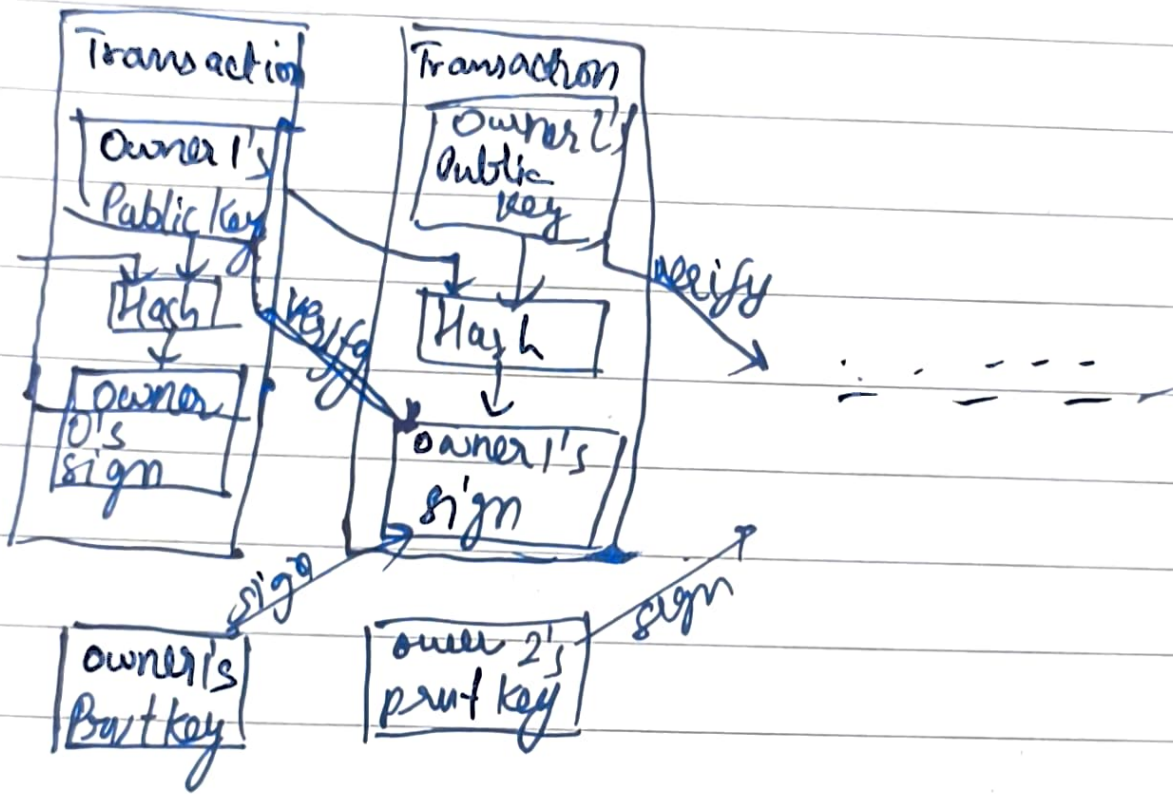 Transaction
Owner 1's
Public Key
Hash
Owner
0's
sign
verify
Transaction
Owner 2's
Public
Key
Hash
owner 1's
sign
verify
sign
owner's
key
sign
2's
key